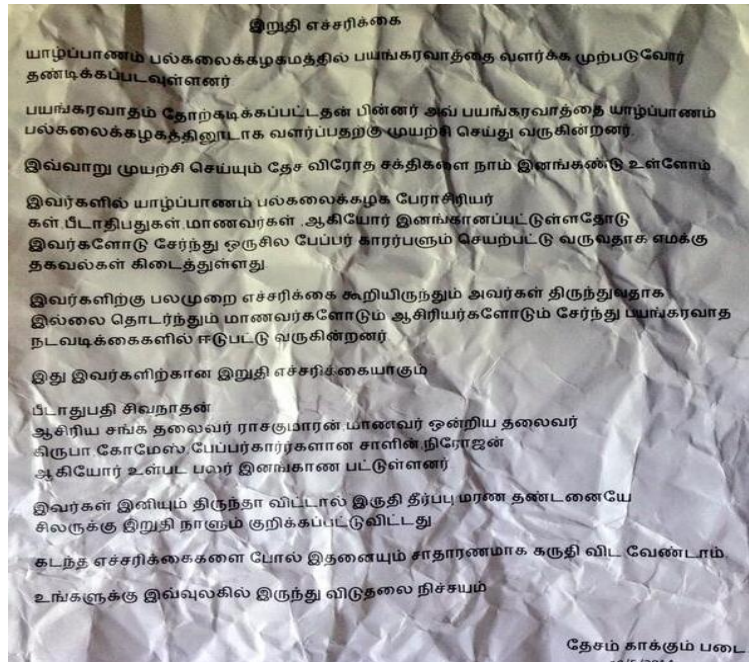 இறுதி எச்சரிக்கை
யாழ்ப்பாணம் பல்கலைக்கழகமத்தில் பயங்கரவாத்தை வளர்க்க முற்படுவோர்
தண்டிக்கப்படவுள்ளனர்
பயங்கரவாதம் தோற்கடிக்கப்பட்டதன் பின்னர் அவ் பயங்கரவாத்தை யாழ்ப்பாணம்
பல்கலைக்கழகத்தினூடாக வளர்ப்பதறகு முயற்சி செய்து வருகின்றனர்.
இவ்வாறு முயற்சி செய்யும் தேச விரோத சக்திகளை நாம் இனங்கண்டு உள்ளோம்.
இவர்களில் யாழ்ப்பாணம் பல்கலைக்கழக பேராசிரியர்
கள்,பீடாதிபதுகள்,மாணவர்கள் ,ஆகியோர் இனங்கானப்பட்டுள்ளதோடு
இவர்களோடு சேர்ந்து ஒருசில பேப்பர் காரர்பளும் செயற்பட்டு வருவதாக எமக்கு
தகவல்கள் கிடைத்துள்ளது
இவர்களிற்கு பலமுறை எச்சரிக்கை கூறியிருந்தும் அவர்கள் திருந்துவதாக
இல்லை தொடர்ந்தும் மாணவர்களோடும் ஆசிரியர்களோடும் சேர்ந்து பயங்கரவாத
நடவடிக்கைகளில் ஈடுபட்டு வருகின்றனர்
இது இவர்களிற்கான இறுதி எச்சரிக்கையாகும்
பீடாதுபதி சிவநாதன்
ஆசிரிய சங்க தலைவர் ராசகுமாரன்,மாணவர் ஒன்றிய தலைவர்
கிருபா,கோமேஸ்,பேப்பர்கார்ர்களான சாளின்,நிரோஜன்
ஆகியோர் உள்பட பலர் இனங்காண பட்டுள்ளனர்
இவர்கள் இனியும் திருந்தா விட்டால் இருதி தீர்பபு மரண தண்டனையே
சிலருக்கு இறுதி நாளும் குறிக்கப்பட்டுவிட்டது
கடந்த எச்சரிக்கைகளை போல் இதனையும் சாதாரணமாக கருதி விட வேண்டாம்.
உங்களுக்கு இவ்வுலகில் இருந்து விடுதலை நிச்சயம்
தேசம் காக்கும் படை